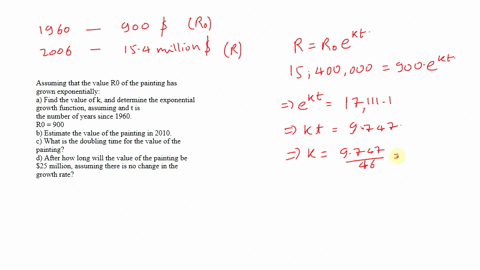 1960 — 900 $ (R₀)
2006 — 15.4 million $ (R)
R = R₀e^kt.
15,400,000 = 900·e^kt
⇒ e^kt = 17,111.1
⇒ kt = 9.747.
⇒ K = 9.747/46 =
Assuming that the value R0 of the painting has
grown exponentially:
a) Find the value of k, and determine the exponential
growth function, assuming and t is
the number of years since 1960.
R0 = 900
b) Estimate the value of the painting in 2010.
c) What is the doubling time for the value of the
painting?
d) After how long will the value of the painting be
$25 million, assuming there is no change in the
growth rate?